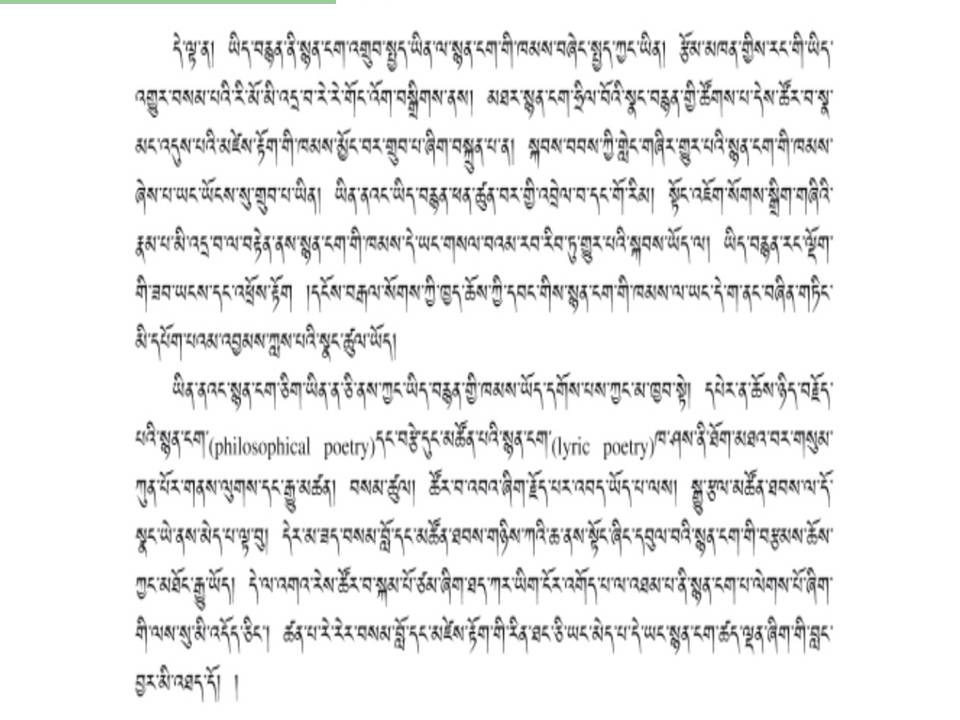 དེ་ལྟ་ན། ཡིད་བརྙན་ནི་སྙན་ངག་འགྲུབ་སྤྱད་ཡིན་ལ་སྙན་ངག་གི་ཁམས་བཞེང་སྤྱད་ཀྱང་ཡིན། རྩོམ་མཁན་གྱིས་རང་གི་ཡིད་
འགྱུར་བསམ་པའི་རི་མོ་མི་འདྲ་བ་རེ་རེ་གོང་འོག་བསྒྲིགས་ནས། མཐར་སྙན་ངག་ཧྲིལ་བོའི་སྣང་བརྙན་གྱི་ཚོགས་པ་དེས་ཚོར་བ་སྣ་
མང་འདུས་པའི་མཛེས་རྟོག་གི་ཁམས་མྱོང་བར་གྲུབ་པ་ཞིག་བསྐྲུན་པ་ན། སྐབས་བབས་ཀྱི་གླེང་གཞིར་གྱུར་པའི་སྙན་ངག་གི་ཁམས་
ཞེས་པ་ཡང་ཡོངས་སུ་གྲུབ་པ་ཡིན། ཡིན་ནའང་ཡིད་བརྙན་ཕན་ཚུན་བར་གྱི་འབྲེལ་བ་དང་གོ་རིམ། སྟོང་འཇོག་སོགས་སྒྲིག་གཞིའི་
རྣམ་པ་མི་འདྲ་བ་ལ་བརྟེན་ནས་སྙན་ངག་གི་ཁམས་དེ་ཡང་གསལ་བའམ་རབ་རིབ་ཏུ་གྱུར་པའི་སྐབས་ཡོད་ལ། ཡིད་བརྙན་རང་ལྡོག་
གི་ཟབ་ཡངས་དང་འཕྲོས་རྟོག །དངོས་བརྒལ་སོགས་ཀྱི་ཁྱད་ཆོས་ཀྱི་དབང་གིས་སྙན་ངག་གི་ཁམས་ལ་ཡང་དེ་ག་ནང་བཞིན་གཏིང་
མི་དཔོག་པའམ་འབྱམས་ཀླས་པའི་སྣང་ཚུལ་ཡོད།
ཡིན་ནའང་སྙན་ངག་ཅིག་ཡིན་ན་ཅི་ནས་ཀྱང་ཡིད་བརྙན་གྱི་ཁམས་ཡོད་དགོས་པས་ཀྱང་མ་ཁྱབ་སྟེ། དཔེར་ན་ཆོས་ཉིད་བརྗོད་
པའི་སྙན་ངག་(philosophical poetry)དང་བརྩེ་དུང་མཚོན་པའི་སྙན་ངག་(lyric poetry)ཁ་ཤས་ནི་ཐོག་མཐའ་བར་གསུམ་
ཀུན་པོར་གནས་ལུགས་དང་རྒྱུ་མཚན། བསམ་ཚུལ། ཚོར་བ་འབའ་ཞིག་རྗོད་པར་འབད་ཡོད་པ་ལས། སྒྱུ་རྩལ་མཚོན་ཐབས་ལ་དོ་
སྣང་ཡེ་ནས་མེད་པ་ལྟ་བུ། དེར་མ་ཟད་བསམ་བློ་དང་མཚོན་ཐབས་གཉིས་ཀའི་ཆ་ནས་སྟོང་ཞིང་དབུལ་བའི་སྙན་ངག་གི་བརྩམས་ཆོས་
ཀྱང་མཐོང་རྒྱུ་ཡོད། དེ་ལ་འགའ་རེས་ཚོར་བ་སྐམ་པོ་ཙམ་ཞིག་ཐད་ཀར་ཡིག་ངོར་འགོད་པ་ལ་འཐམ་པ་ནི་སྙན་ངག་པ་ལེགས་པོ་ཞིག་
གི་ལས་སུ་མི་འདོད་ཅིང་། ཚན་པ་རེ་རེར་བསམ་བློ་དང་མཛེས་རྟོག་གི་རིན་ཐང་ཅི་ཡང་མེད་པ་དེ་ཡང་སྙན་ངག་ཚད་ལྡན་ཞིག་གི་བླང་
བྱར་མི་འཐད་དོ། །